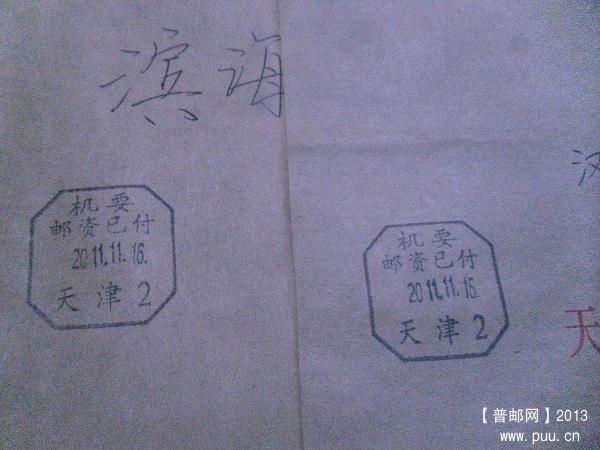 滨海
机要
邮资已付
2011.11.16.
天津2
机要
邮资已付
2011.11.15.
天津2
汉
天
【普邮网】2013
www.puu.cn